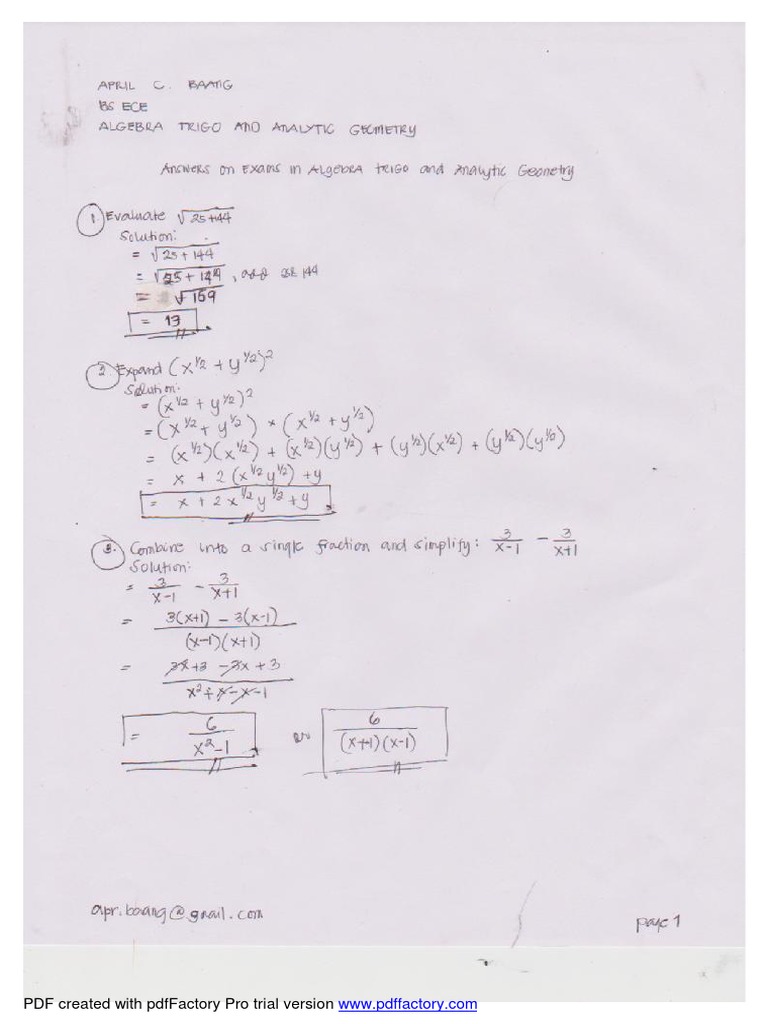 APRIL C. BAANG
BS ECE
ALGEBRA TRIGO AND ANALYTIC GEOMETRY
ANSWERS ON EXAMS IN ALGEBRA TRIGO and Analytic Geometry
1. Evaluate √25+44
Solution:
= √25+144
= √25+144, add 144
= √169
= 13
2. Expand (x^1/2 + y^1/2)^2
Solution:
= (x^1/2 + y^1/2)^2
= (x^1/2 + y^1/2) * (x^1/2 + y^1/2)
= (x^1/2)(x^1/2) + (x^1/2)(y^1/2) + (y^1/2)(x^1/2) + (y^1/2)(y^1/2)
= x + 2 (x^1/2 y^1/2) + y
= x + 2 x^1/2 y^1/2 + y
3. Combine into a single fraction and simplify: 3/x-1 - 3/x+1
Solution:
= 3/x-1 - 3/x+1
= 3(x+1) - 3(x-1)
(x-1)(x+1)
= 3x+3 -3x+3
x²+x-x-1
= 6/x²-1 or 6/(x+1)(x-1)
apr.baang@gmail.com
page 1
PDF created with pdfFactory Pro trial version www.pdffactory.com